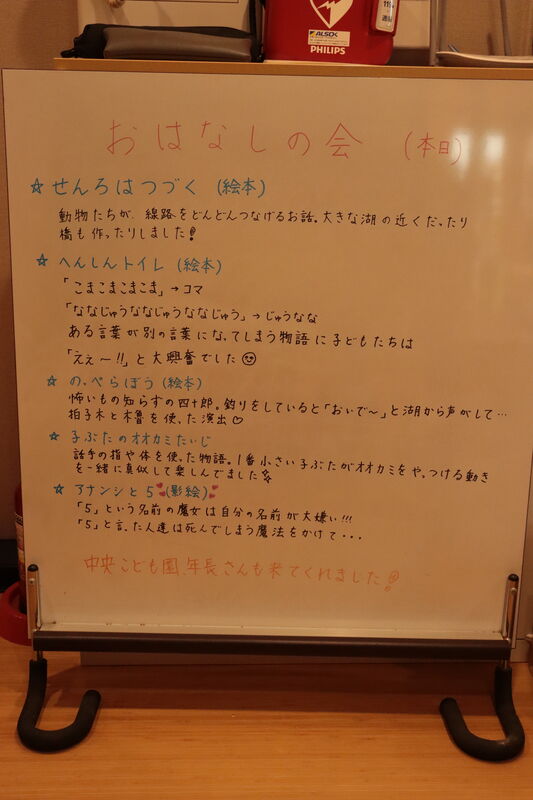 119
ALSOK
PHILIPS
おはなしの会 (本日)
☆ せんろはつづく (絵本)
動物たちが、線路をどんどんつなげるお話。大きな湖の近くだったり
橋も作ったりしました!
☆ へんしんトイレ (絵本)
「こまこまこまこま」→コマ
「ななじゅうななじゅうななじゅう」→じゅうなな
ある言葉が別の言葉になってしまう物語に子どもたちは
「えぇ〜!!」と大興奮でした
☆ のっぺらぼう (絵本)
怖いもの知らずの四十郎。釣りをしていると「おぃで〜」と湖から声がして…
拍子木と木魯を使った演出♡
☆ 子ぶたのオオカミたいじ
話手の指や体を使った物語。1番小さい子ぶたがオオカミをやっつける動き
を一緒に真似して楽しんでました
☆ アナンシと5 (影絵)
「5」という名前の魔女は自分の名前が大嫌い!!!
「5」と言った人達は死んでしまう魔法をかけて・・・
中央こども園、年長さんも来てくれました!